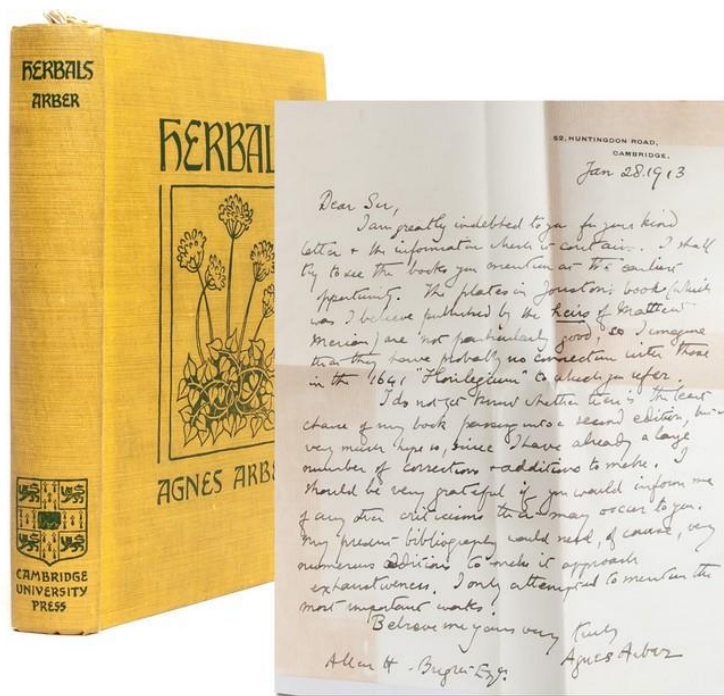 HERBALS
ARBER
CAMBRIDGE
UNIVERSITY
PRESS
HERBAL
AGNES ARBE
52, HUNTINGDON ROAD,
CAMBRIDGE.
Jan 28. 1913
Dear Sir,
I am greatly indebted to you for your kind
letter & the information which it contains. I shall
try to see the books you mention at the earliest
opportunity. The plates in Jonston's book (which
was I believe published by the heirs of Matthew
Merian) are not particularly good, so I imagine
that they have probably no connection with those
in the 1641 "Florilegium" to which you refer.
I do not yet know whether there is the least
chance of my book passing into a second edition, but
very much hope so, since I have already a large
number of corrections & additions to make. I
should be very grateful if you would inform me
of any other criticisms that may occur to you.
My present bibliography would need, of course, very
numerous additions to make it approach
exhaustiveness. I only attempted to mention the
most important works.
Believe me yours very truly
Agnes Arber
Allan H. Bright Esq.